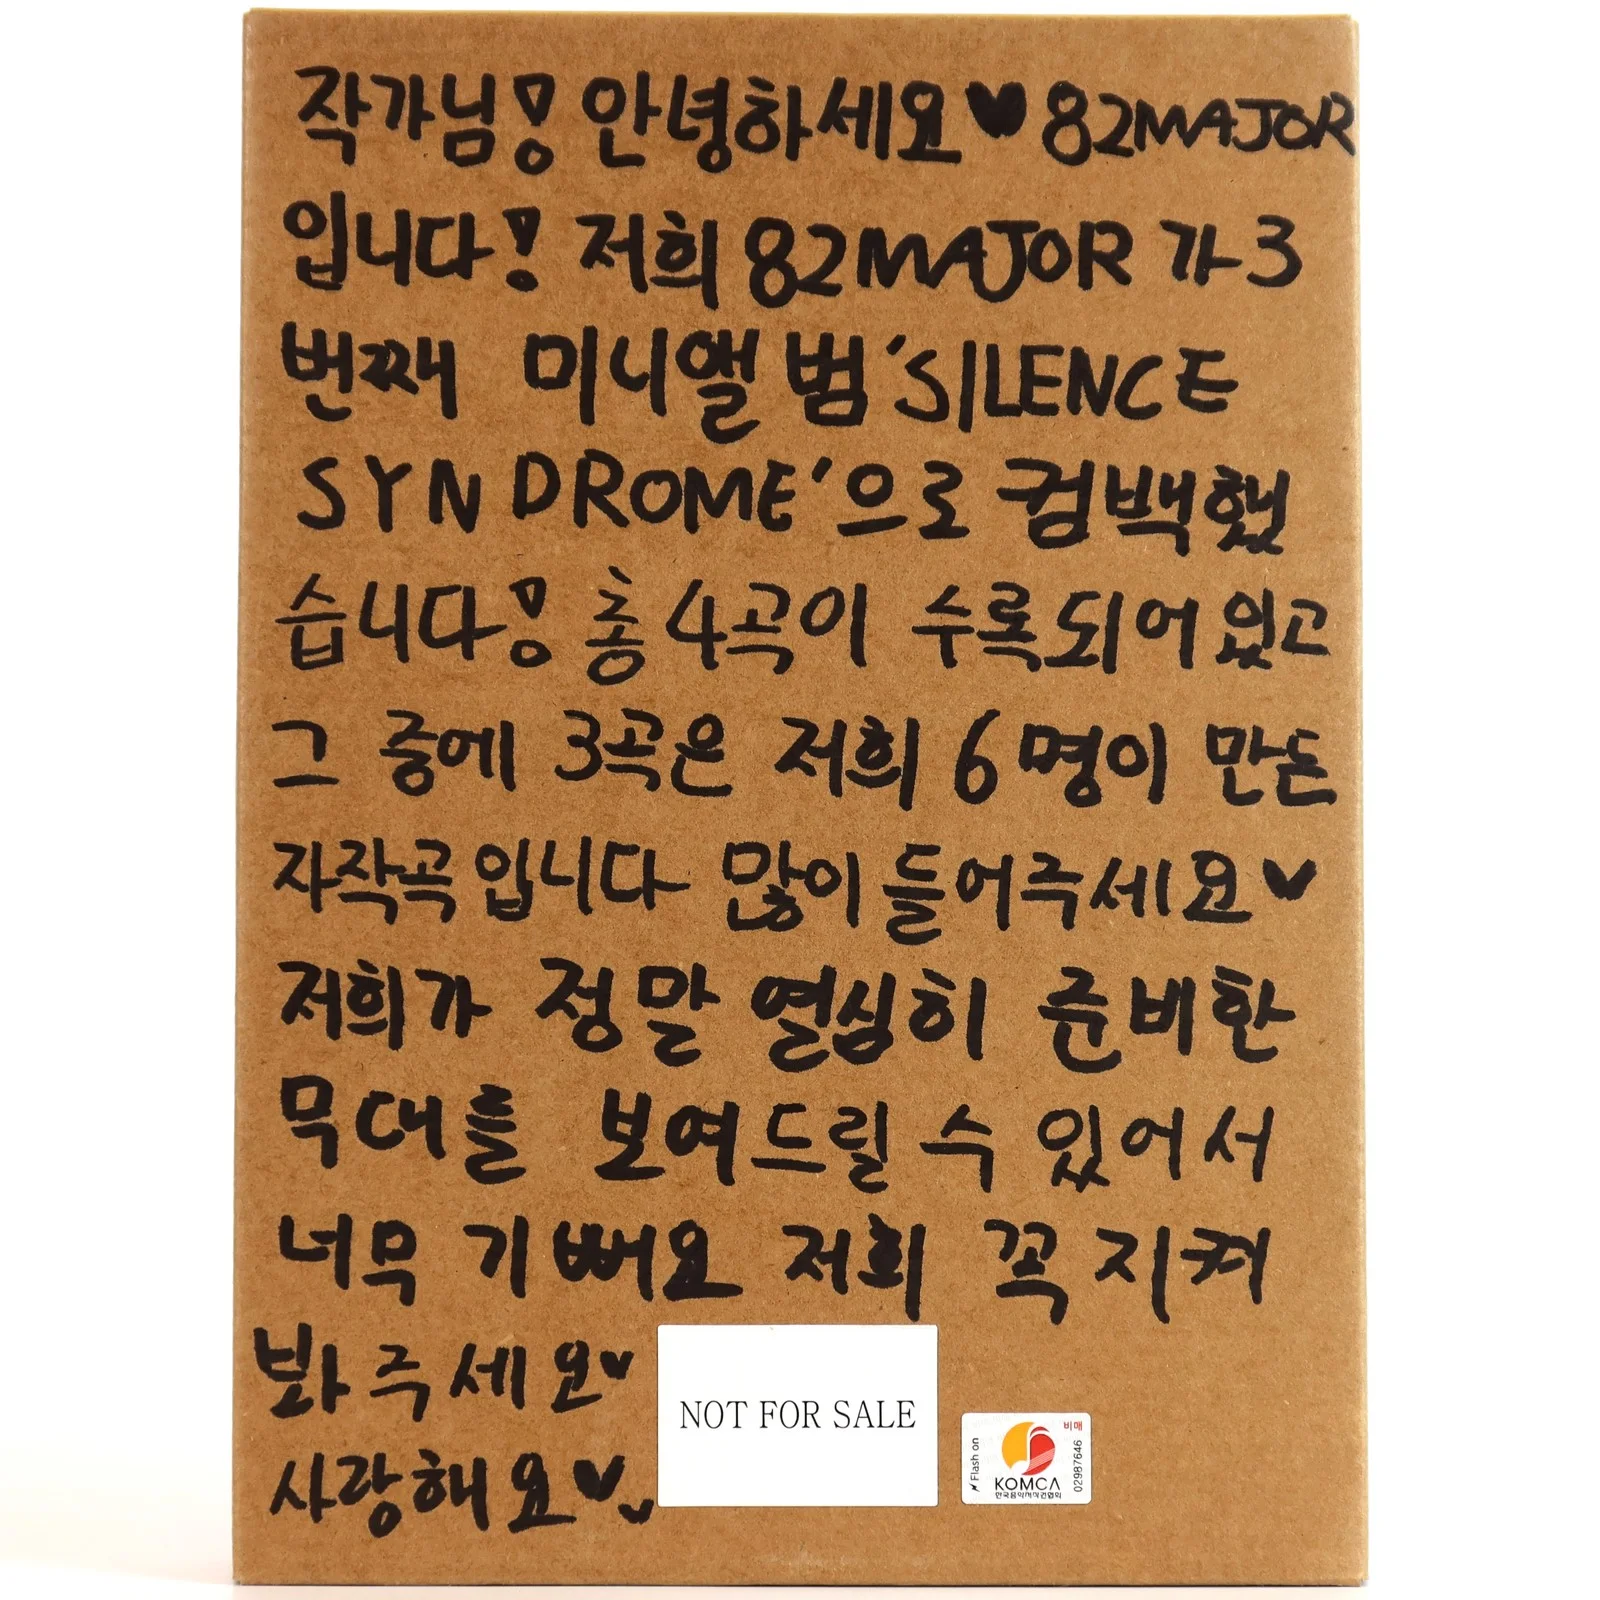 작가님! 안녕하세요♥ 82MAJOR
입니다! 저희 82MAJOR 가 3
번째 미니앨범 'SILENCE
SYNDROME'으로 컴백했
습니다! 총 4곡이 수록되어 있고
그 중에 3곡은 저희 6명이 만든
자작곡입니다 많이 들어주세요♥
저희가 정말 열심히 준비한
무대를 보여드릴 수 있어서
너무 기뻐요 저희 꼭 지켜
봐 주세요♥
사랑해요♥
NOT FOR SALE
Flash on
비매
02987646
KOMCA
한국음악저작권협회